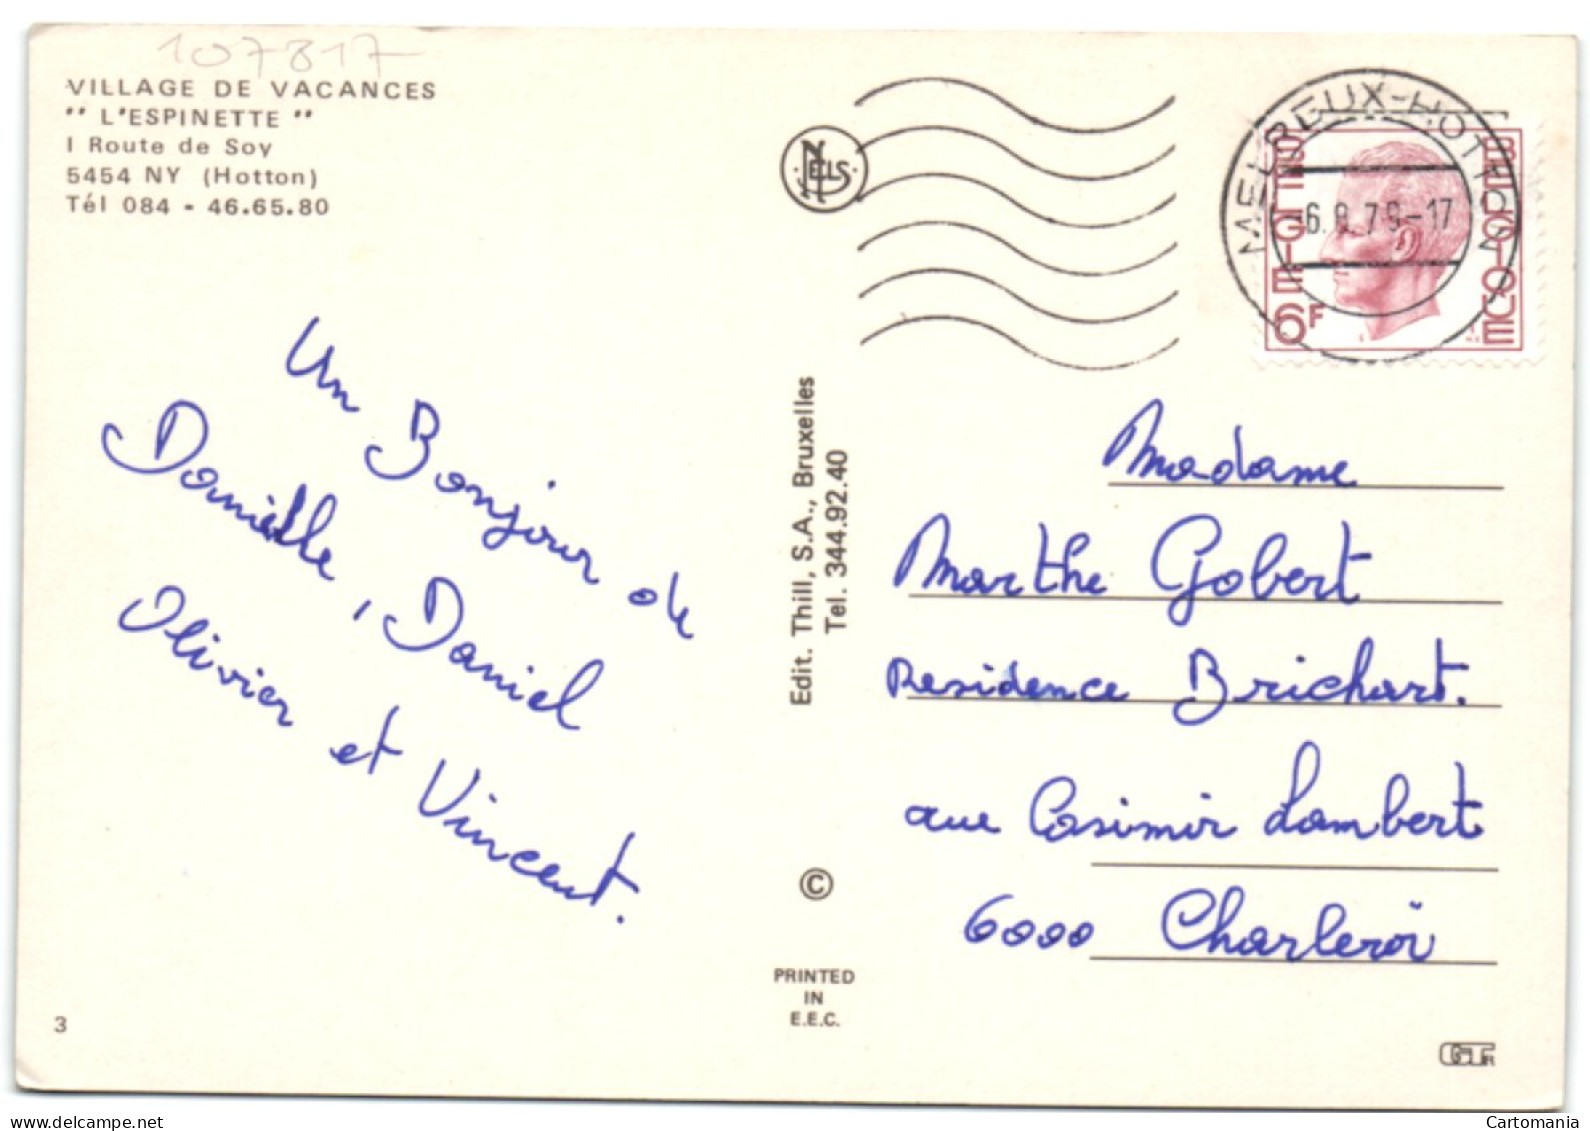 107817
VILLAGE DE VACANCES
" L'ESPINETTE "
1 Route de Soy
5454 NY (Hotton)
Tél 084 - 46.65.80
Un Bonjour de
Danièlle, Daniel
Olivier et Vincent.
3
NELS
Edit. Thill, S.A., Bruxelles
Tel. 344.92.40
©
PRINTED
IN
E.E.C.
MELREUX-HOTTON
-6.8.79-17
BELGIE
BELGIQUE
6F
Madame
Marthe Gobert
Residence Brichart.
rue Casimir Lambert
6000 Charleroi
Cartomania